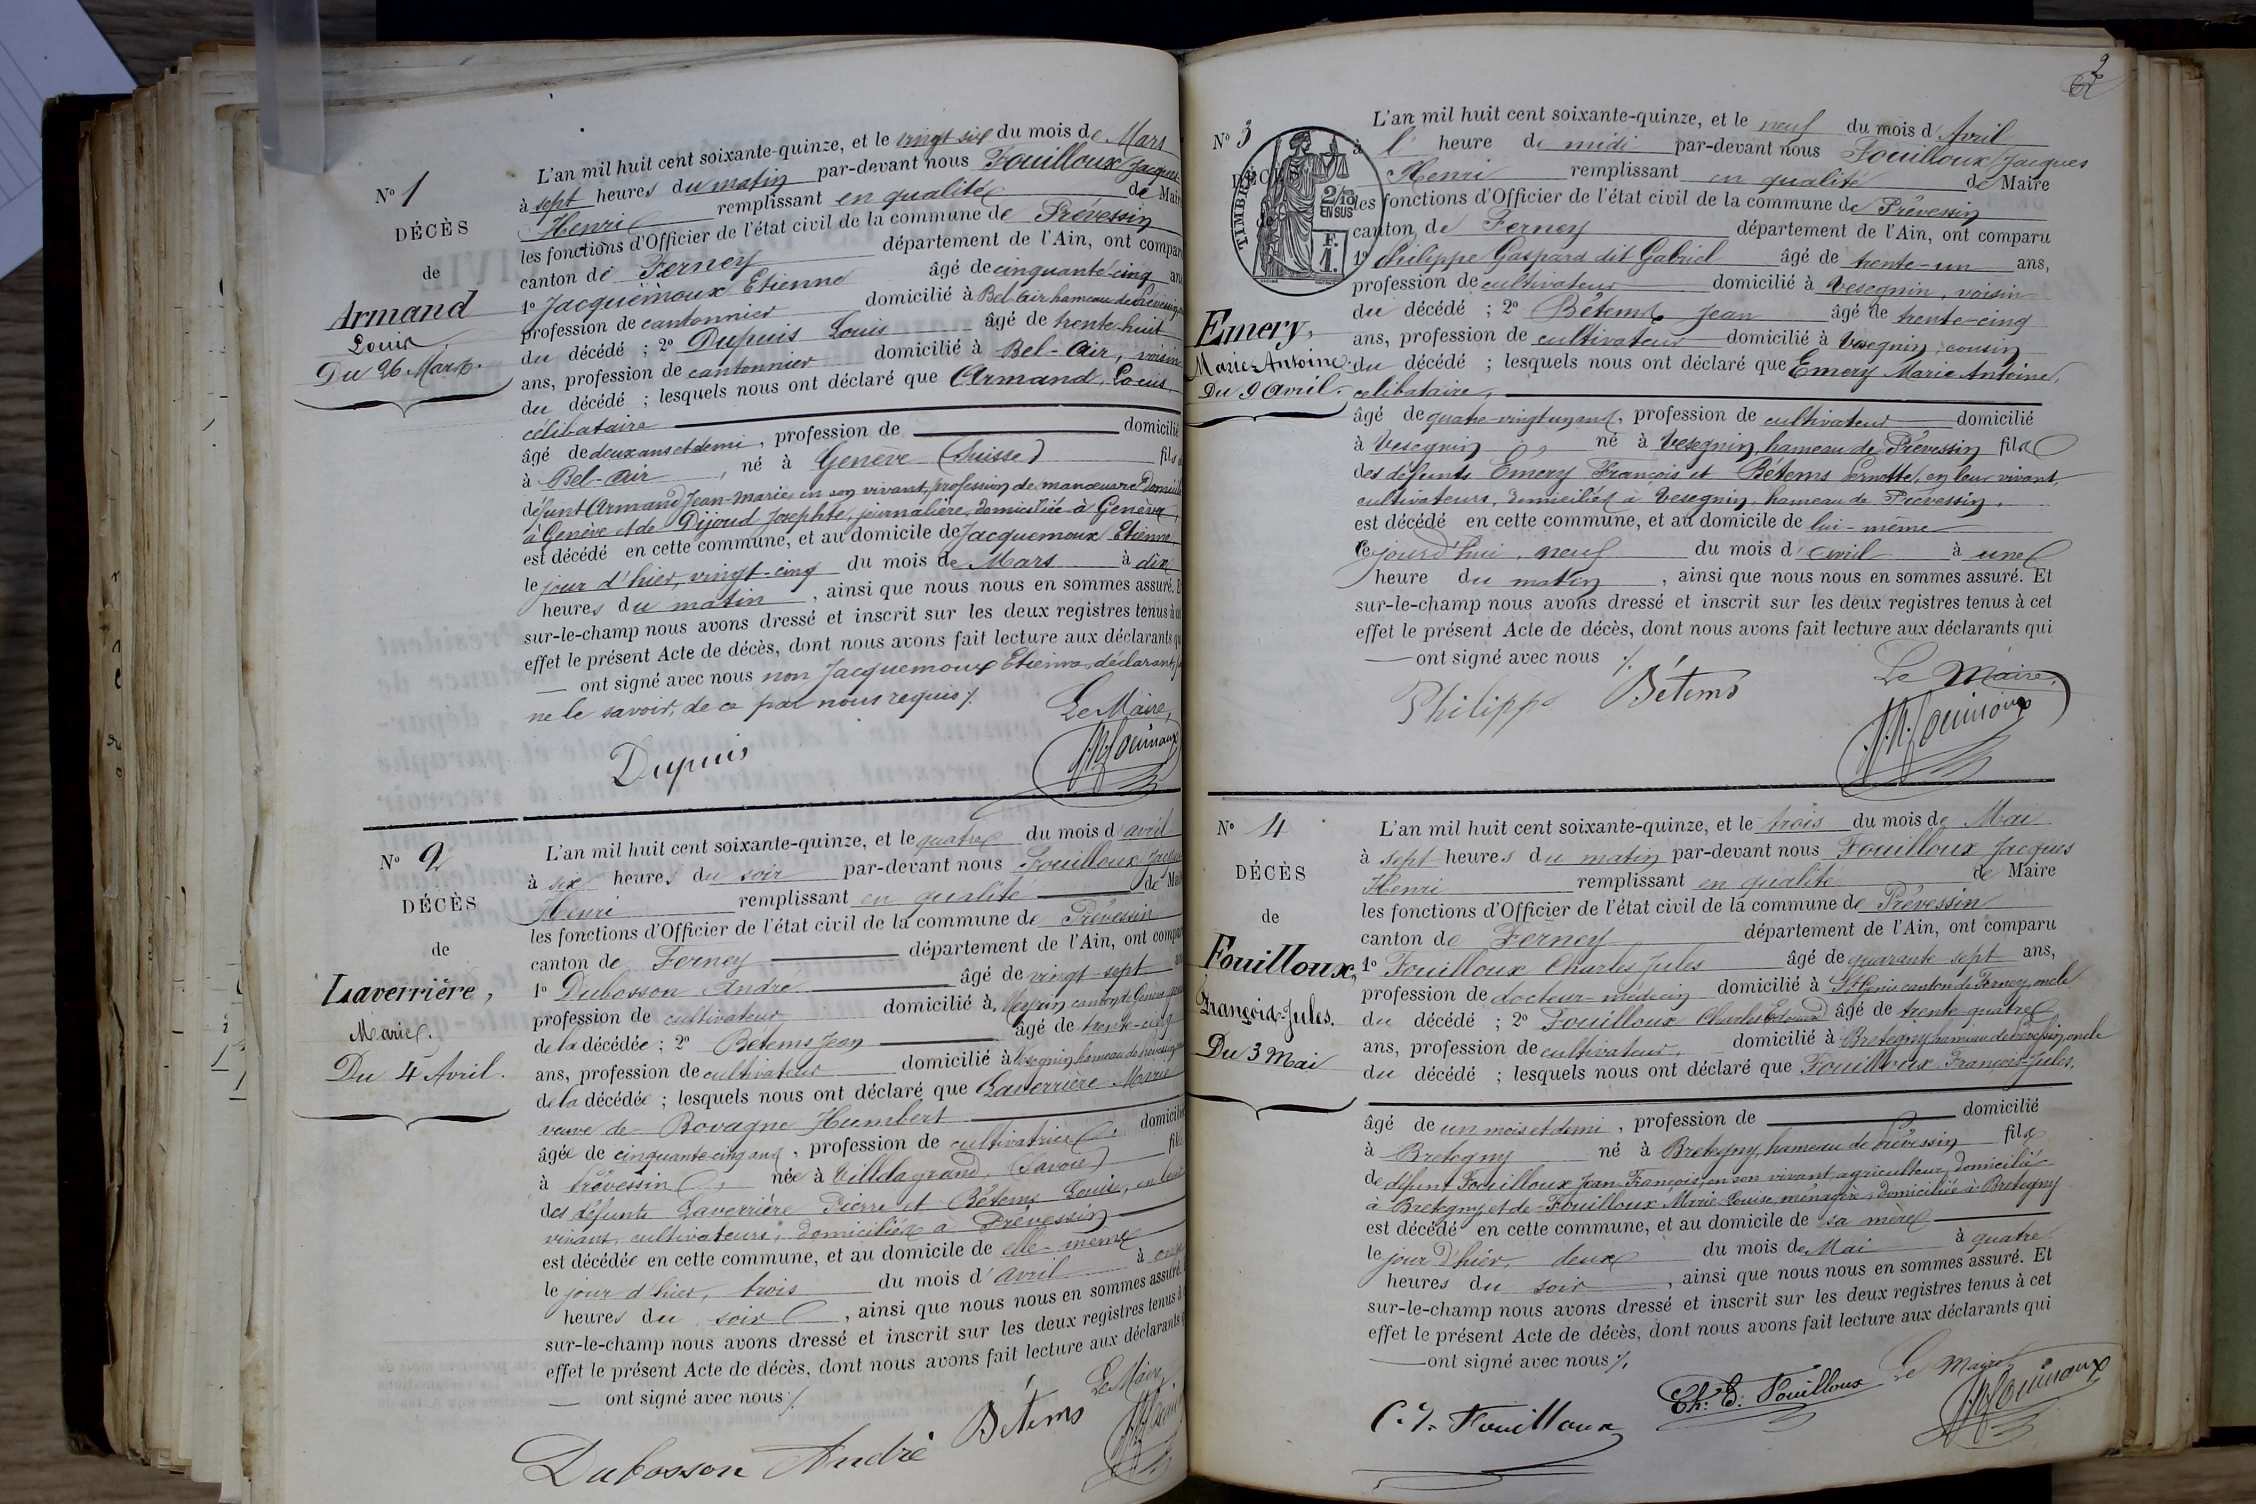 N° 1
DÉCÈS
de
Armand
Louis
Du 26 Mars.
L'an mil huit cent soixante-quinze, et le vingt six du mois de Mars
à sept heures du matin par-devant nous Fouilloux Jacques
Henri remplissant en qualité de Maire
les fonctions d'Officier de l'état civil de la commune de Prévessin
canton de Ferney département de l'Ain, ont comparu
1° Jacquemoux Etienne âgé de cinquante-cinq ans
profession de cantonnier domicilié à Bel-air hameau de Prévessin
du décédé ; 2° Dupuis Louis âgé de trente-huit
ans, profession de cantonnier domicilié à Bel-Air, voisin
du décédé ; lesquels nous ont déclaré que Armand, Louis,
célibataire
âgé de deux ans et demi, profession de domicilié
à Bel-air, né à Genève (Suisse) fils de
défunt Armand Jean-Marie en son vivant, profession de manœuvre domicilié
à Genève et de Dijoud Josephte, journalière, domiciliée à Genève
est décédé en cette commune, et au domicile de Jacquemoux Etienne
le jour d'hier, vingt-cinq du mois de Mars à dix
heures du matin, ainsi que nous nous en sommes assuré. Et
sur-le-champ nous avons dressé et inscrit sur les deux registres tenus à cet
effet le présent Acte de décès, dont nous avons fait lecture aux déclarants qui
ont signé avec nous non Jacquemoux Etienne, déclarant,
ne le savoir, de ce par nous requis ./.
Le Maire,
Dupuis
N° 2
DÉCÈS
de
Laverrière,
Marie.
Du 4 Avril.
L'an mil huit cent soixante-quinze, et le quatre du mois d'avril
à six heures du soir par-devant nous Fouilloux Jacques
Henri remplissant en qualité de Maire
les fonctions d'Officier de l'état civil de la commune de Prévessin
canton de Ferney département de l'Ain, ont comparu
1° Dubosson André âgé de vingt-sept ans
profession de cultivateur domicilié à Meyrin canton de Genève
de la décédée ; 2° Bétems Jean âgé de trente-cinq
ans, profession de cultivateur domicilié à Vesegnin hameau de Prévessin
de la décédée ; lesquels nous ont déclaré que Laverrière Marie
veuve de Bovagne Humbert
âgée de cinquante-cinq ans, profession de cultivatrice, domiciliée
à Prévessin, née à Ville la grand, (Savoie) fille
des défunts Laverrière Pierre et Bétems Louise, en leur
vivant, cultivateurs, domiciliés à Prévessin
est décédée en cette commune, et au domicile de elle-même
le jour d'hier, trois du mois d'avril à onze
heures du soir, ainsi que nous nous en sommes assuré.
sur-le-champ nous avons dressé et inscrit sur les deux registres tenus à
effet le présent Acte de décès, dont nous avons fait lecture aux déclarants
ont signé avec nous ./.
Le Maire,
Dubosson André Bétems
2
N° 3
TIMBRE
2/10 EN SUS
F. 1.
Emery,
Marie-Antoine.
Du 9 Avril.
L'an mil huit cent soixante-quinze, et le neuf du mois d'Avril
à l' heure de midi par-devant nous Fouilloux Jacques
Henri remplissant en qualité de Maire
les fonctions d'Officier de l'état civil de la commune de Prévessin
canton de Ferney département de l'Ain, ont comparu
1° Philippe Gaspard dit Gabriel âgé de trente-un ans,
profession de cultivateur domicilié à Vesegnin, voisin
du décédé ; 2° Bétems Jean âgé de trente-cinq
ans, profession de cultivateur domicilié à Vesegnin, cousin
du décédé ; lesquels nous ont déclaré que Emery Marie Antoine,
célibataire,
âgé de quatre-vingt un ans, profession de cultivateur domicilié
à Vesegnin, né à Vesegnin, hameau de Prévessin fils
des défunts Emery François et Bétems Pernotte, en leur vivant,
cultivateurs, domiciliés à Vesegnin, hameau de Prévessin,
est décédé en cette commune, et au domicile de lui-même
Cejourd'hui, neuf du mois d'avril à une
heure du matin, ainsi que nous nous en sommes assuré. Et
sur-le-champ nous avons dressé et inscrit sur les deux registres tenus à cet
effet le présent Acte de décès, dont nous avons fait lecture aux déclarants qui
ont signé avec nous ./.
Le Maire,
Philippe Bétems
N° 4
DÉCÈS
de
Fouilloux,
François-Jules.
Du 3 Mai
L'an mil huit cent soixante-quinze, et le trois du mois de Mai
à sept heures du matin par-devant nous Fouilloux Jacques
Henri remplissant en qualité de Maire
les fonctions d'Officier de l'état civil de la commune de Prévessin
canton de Ferney département de l'Ain, ont comparu
1° Fouilloux Charles Jules âgé de quarante sept ans,
profession de docteur-médecin domicilié à St Genis canton de Ferney, oncle
du décédé ; 2° Fouilloux Charles Edouard âgé de trente-quatre
ans, profession de cultivateur, domicilié à Bretegny hameau de Prévessin, oncle
du décédé ; lesquels nous ont déclaré que Fouilloux François-Jules,
âgé de un mois et demi, profession de domicilié
à Bretegny né à Bretegny, hameau de Prévessin fils
de défunt Fouilloux Jean-François, en son vivant, agriculteur, domicilié
à Bretegny et de Fouilloux Marie-Louise, ménagère, domiciliée à Bretegny
est décédé en cette commune, et au domicile de sa mère
le jour d'hier, deux du mois de Mai à quatre
heures du soir, ainsi que nous nous en sommes assuré. Et
sur-le-champ nous avons dressé et inscrit sur les deux registres tenus à cet
effet le présent Acte de décès, dont nous avons fait lecture aux déclarants qui
ont signé avec nous ./.
Le Maire
C. J. Fouilloux Ch: E: Fouilloux